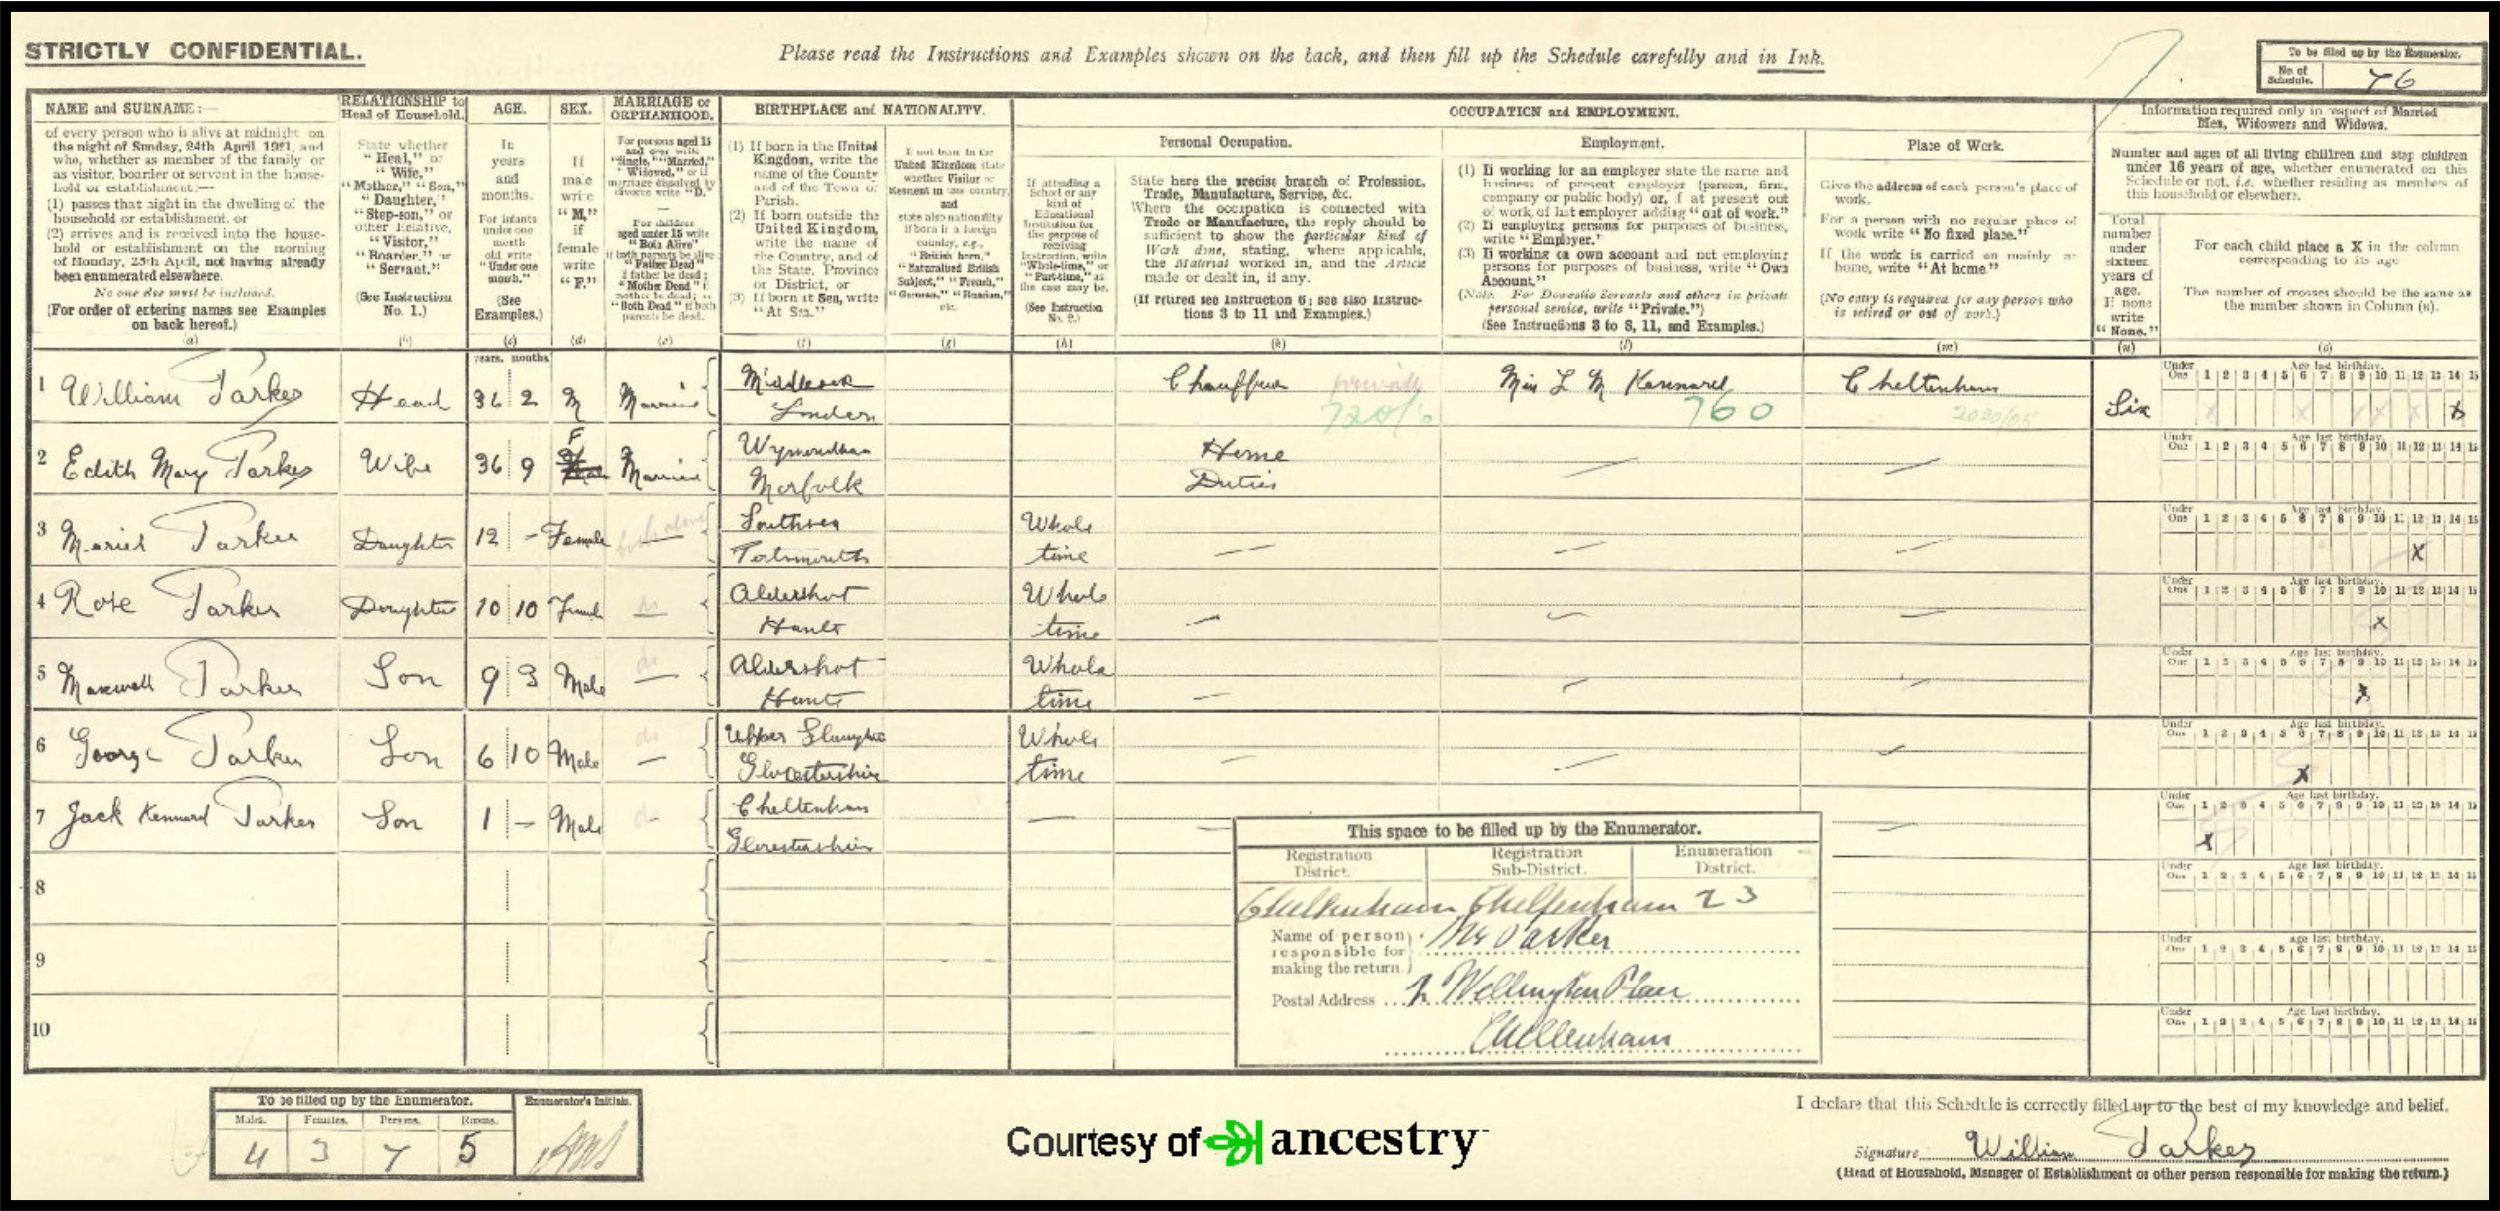 STRICTLY CONFIDENTIAL.
Please read the Instructions and Examples shown on the back, and then fill up the Schedule carefully and in Ink.
To be filled up by the Enumerator.
No. of Schedule. 76
NAME and SURNAME:—
of every person who is alive at midnight on
the night of Sunday, 24th April 1921, and
who, whether as member of the family or
as visitor, boarder or servant in the house-
hold or establishment:—
(1) passes that night in the dwelling of the
household or establishment, or
(2) arrives and is received into the house-
hold or establishment on the morning
of Monday, 25th April, not having already
been enumerated elsewhere.
No one else must be included.
(For order of entering names see Examples
on back hereof.)
(a)
RELATIONSHIP to
Head of Household.
State whether
"Head," or
"Wife,"
"Mother," "Son,"
"Daughter,"
"Step-son," or
other Relative,
"Visitor,"
"Boarder," or
"Servant."
(See Instruction
No. 1.)
(b)
AGE.
In
years
and
months.
For infants
under one
month
old write
"Under one
month."
(See
Examples.)
(c)
SEX.
If
male
write
"M,"
if
female
write
"F."
(d)
MARRIAGE or
ORPHANHOOD.
For persons aged 15
and over write
"Single," "Married,"
"Widowed," or if
marriage dissolved by
divorce write "D."
For children
aged under 15 write
"Both Alive"
if both parents be alive
"Father Dead"
if father be dead;
"Mother Dead" if
mother be dead; or
"Both Dead" if both
parents be dead.
(e)
BIRTHPLACE and NATIONALITY.
(1) If born in the United
Kingdom, write the
name of the County
and of the Town or
Parish.
(2) If born outside the
United Kingdom,
write the name of
the Country, and of
the State, Province
or District, or
(3) If born at Sea, write
"At Sea."
(f)
If not born in the
United Kingdom state
whether Visitor or
Resident in this country,
and
state also nationality
if born in a foreign
country, e.g.,
"British born,"
"Naturalised British
Subject," "French,"
"German," "Russian,"
etc.
(g)
OCCUPATION and EMPLOYMENT.
If attending a
School or any
kind of
Educational
Institution for
the purpose of
receiving
Instruction, write
"Whole-time," or
"Part-time," as
the case may be.
(See Instruction
No. 2.)
(h)
Personal Occupation.
State here the precise branch of Profession,
Trade, Manufacture, Service, &c.
Where the occupation is connected with
Trade or Manufacture, the reply should be
sufficient to show the particular kind of
Work done, stating, where applicable,
the Material worked in, and the Article
made or dealt in, if any.
(If retired see Instruction 6; see also Instruc-
tions 3 to 11 and Examples.)
(k)
Employment.
(1) If working for an employer state the name and
business of present employer (person, firm,
company or public body) or, if at present out
of work, of last employer adding "out of work."
(2) If employing persons for purposes of business,
write "Employer."
(3) If working on own account and not employing
persons for purposes of business, write "Own
Account."
(Note. For Domestic Servants and others in private
personal service, write "Private.")
(See Instructions 3 to 8, 11, and Examples.)
(l)
Place of Work.
Give the address of each person's place of
work.
For a person with no regular place of
work write "No fixed place."
If the work is carried on mainly at
home, write "At home."
(No entry is required for any person who
is retired or out of work.)
(m)
Information required only in respect of Married
Men, Widowers and Widows.
Number and ages of all living children and step children
under 16 years of age, whether enumerated on this
Schedule or not, i.e. whether residing as members of
this household or elsewhere.
Total
number
under
sixteen
years of
age.
If none
write
"None."
(n)
For each child place a X in the column
corresponding to its age
The number of crosses should be the same as
the number shown in Column (n).
(o)
years. months.
1 William Parker Head 36 2 M Married Middlesex London Chauffeur private 720/6 Miss L M Kennard 760 Cheltenham 2030/05 Six
2 Edith Mary Parker Wife 36 9 F Married Wymondham Norfolk Home Duties
3 Muriel Parker Daughter 12 - Female both alive Southsea Portsmouth Whole time
4 Rose Parker Daughter 10 10 Female do Aldershot Hants Whole time
5 Maxwell Parker Son 9 3 Male do Aldershot Hants Whole time
6 George Parker Son 6 10 Male do Upper Slaughter Glocestershire Whole time
7 Jack Kennard Parker Son 1 - Male do Cheltenham Glocestershire
8
9
10
Under One 1 2 3 4 5 6 7 8 9 10 11 12 13 14 15
Age last birthday.
This space to be filled up by the Enumerator.
Registration District. Registration Sub-District. Enumeration District.
Cheltenham Cheltenham 23
Name of person responsible for making the return. Mr Parker
Postal Address Wellington Place
Cheltenham
To be filled up by the Enumerator. Enumerator's Initials.
Males. Females. Persons. Rooms.
4 3 7 5
Courtesy of ancestry
I declare that this Schedule is correctly filled up to the best of my knowledge and belief.
Signature William Parker
(Head of Household, Manager of Establishment or other person responsible for making the return.)